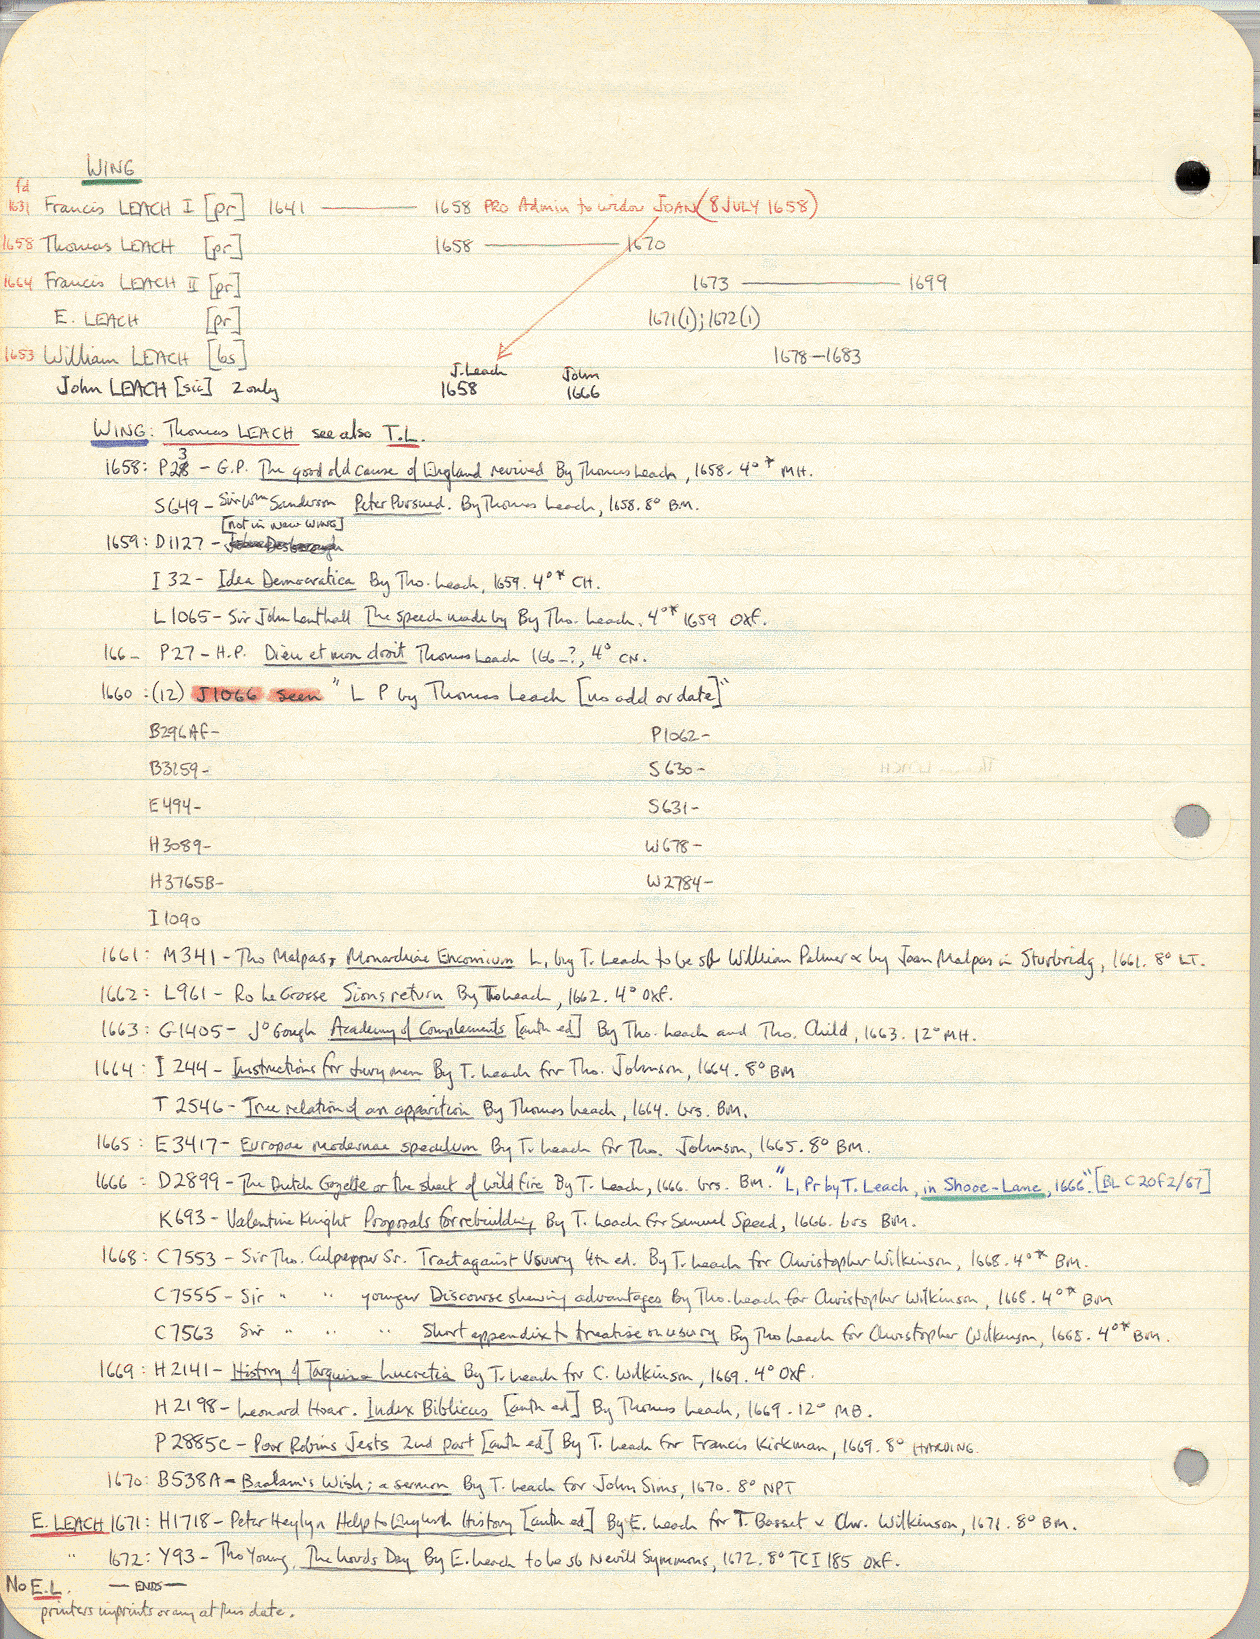 WING
fd
1631 Francis LEACH I [pr] 1641 — 1658 PRO Admin to widow JOAN (8 JULY 1658)
1658 Thomas LEACH [pr] 1658 — 1670
1664 Francis LEACH II [pr] 1673 — 1699
E. LEACH [pr] 1671(1); 1672(1)
1653 William LEACH [bs] 1678—1683
J. Leach John
John LEACH [sic] 2 only 1658 1666
WING: Thomas LEACH see also T.L.
1658: P23 - G.P. The good old cause of England revived By Thomas Leach, 1658. 4° * MH.
S649 - Sir Wm Sanderson Peter Pursued. By Thomas Leach, 1658. 8° BM.
[not in new WING]
1659: D1127 - John Desborough
I 32 - Idea Democratica By Tho. Leach, 1659. 4°* CH.
L1065 - Sir John Lenthall The speech made by By Tho. Leach. 4°* 1659 Oxf.
166_ P27 - H.P. Dieu et mon droit Thomas Leach 166_?, 4° CN.
1660: (12) J1066 seen "L P by Thomas Leach [no add or date]"
B296AF- P1062-
B3259- S630-
E494- S631-
H3089- W678-
H3765B- W2784-
I1090
1661: M341 - Tho Malpas, Monarchiae Encomium L, by T. Leach to be sd William Palmer & by Joan Malpas in Sturbridg, 1661. 8° LT.
1662: L961 - Ro Le Grosse Sions return By Tho Leach, 1662. 4° Oxf.
1663: G1405 - Jo Gough Academy of Complements [anth ed] By Tho. Leach and Tho. Child, 1663. 12° MH.
1664: I 244 - Instructions for Jury men By T. Leach for Tho. Johnson, 1664. 8° BM
T 2546 - True relation of an apparition By Thomas Leach, 1664. brs. BM.
1665: E3417 - Europae modernae speculum By T. Leach for Tho. Johnson, 1665. 8° BM.
1666: D2899 - The Dutch Gazette or the sheet of wild fire By T. Leach, 1666. brs. BM. "L, Pr by T. Leach, in Shooe-Lane, 1666." [BL C20f2/67]
K693 - Valentine Knight Proposals for rebuilding By T. Leach for Samuel Speed, 1666. brs BM.
1668: C7553 - Sir Tho. Culpepper Sr. Tract against Usury 4th ed. By T. Leach for Christopher Wilkinson, 1668. 4°* BM.
C7555 - Sir " " younger Discourse shewing advantages By Tho. Leach for Christopher Wilkinson, 1668. 4°* BM
C7563 Sir " " " Short appendix to treatise on usury By Tho Leach for Christopher Wilkinson, 1668. 4°* BM.
1669: H2141 - History of Tarquin & Lucretia By T. Leach for C. Wilkinson, 1669. 4° Oxf.
H2198 - Leonard Hoar. Index Biblicus [anth ed] By Thomas Leach, 1669. 12° MB.
P2885C - Poor Robins Jests 2nd part [anth ed] By T. Leach for Francis Kirkman, 1669. 8° HARDING.
1670: B538A - Baalam's Wish; a sermon By T. Leach for John Sims, 1670. 8° NPT
E. LEACH 1671: H1718 - Peter Heylyn Help to English History [anth ed] By E. Leach for T. Basset & Chr. Wilkinson, 1671. 8° BM.
" 1672: Y93 - Tho Young, The Lords Day By E. Leach to be sb Nevill Symmons, 1672. 8° TC I 185 Oxf.
No E.L. — ENDS —
printers imprints or any at this date.